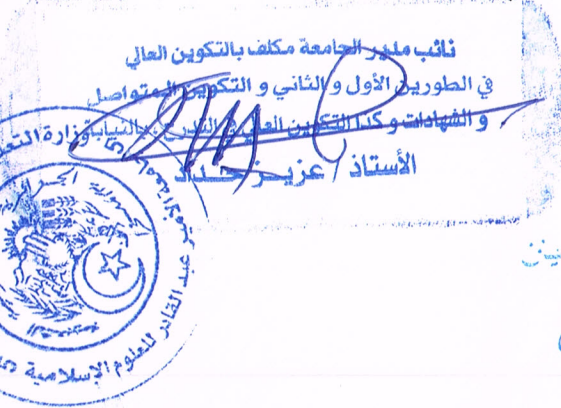 نائب مدير الجامعة مكلف بالتكوين العالي
في الطورين الأول و الثاني و التكوين المتواصل
و الشهادات و كذا التكوين العالي في التدرج بالنيابة
الأستاذ / عزيز حداد
وزارة التعليم
جامعة الأمير عبد القادر للعلوم الإسلامية